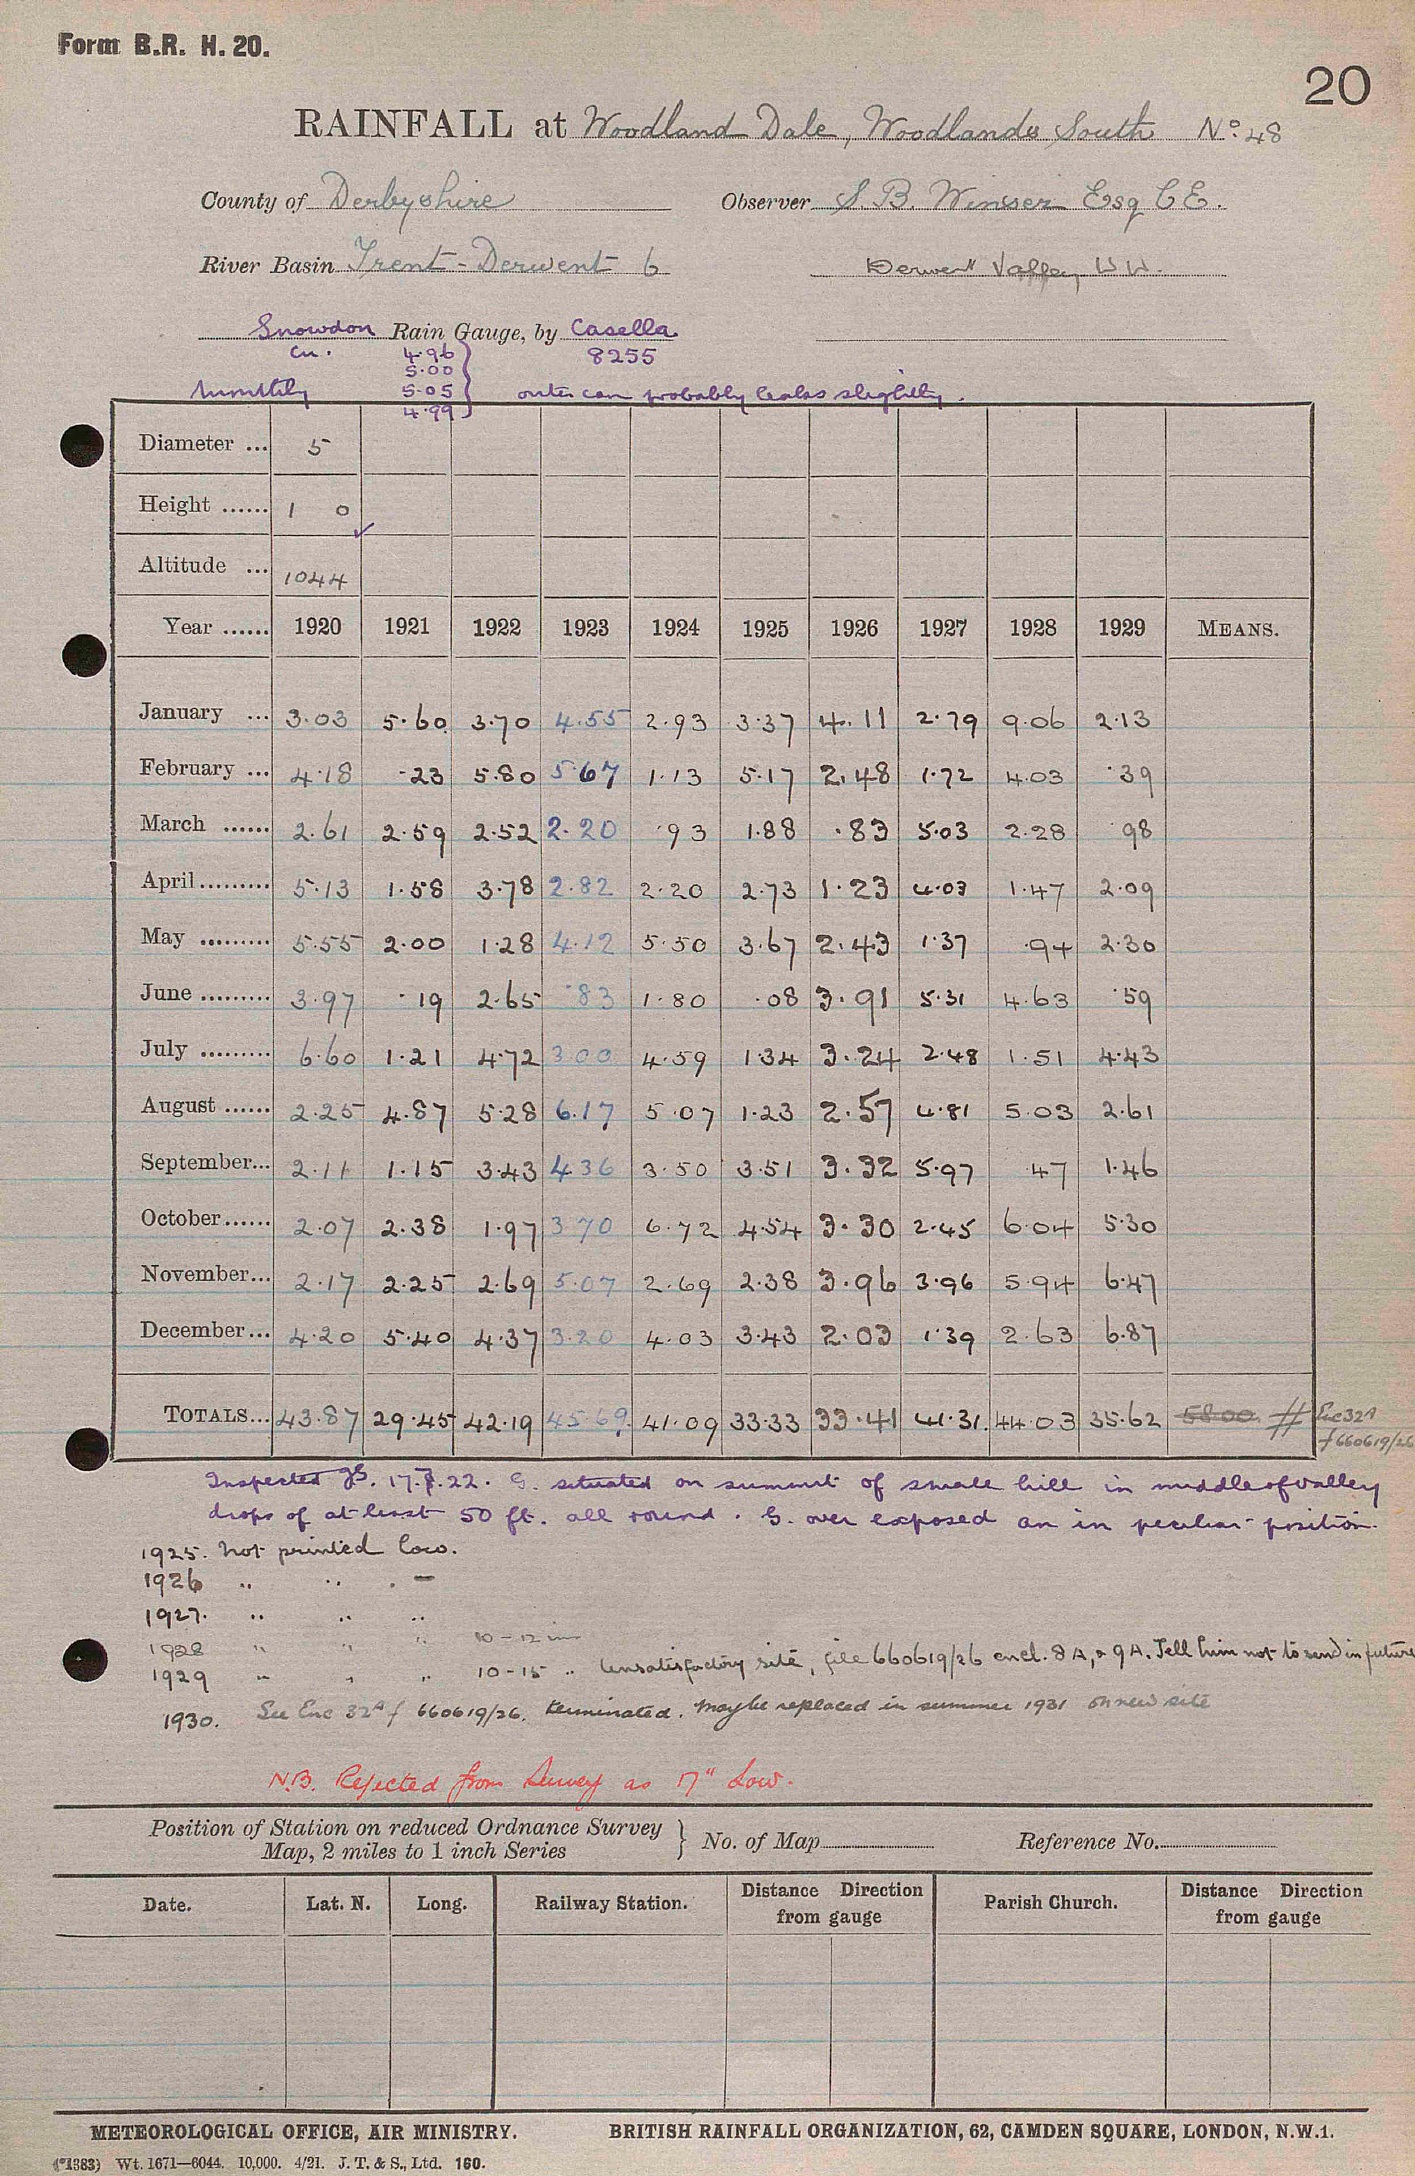 Form B.R. H. 20.
20
RAINFALL at Woodland Dale, Woodlands South No. 48
County of Derbyshire Observer S. B. Winser Esq C E.
River Basin Trent - Derwent 6 Derwent Valley W W.
Snowdon Rain Gauge, by Casella
cu. 4.96 8255
5.00
Monthly 5.05 outer can probably leaks slightly.
4.99
Diameter ... 5
Height ...... 1 0 ✓
Altitude ... 1044
Year ...... 1920 1921 1922 1923 1924 1925 1926 1927 1928 1929 MEANS.
January ... 3.03 5.60 3.70 4.55 2.93 3.37 4.11 2.79 9.06 2.13
February ... 4.18 .23 5.80 5.67 1.13 5.17 2.48 1.72 4.03 .39
March ...... 2.61 2.59 2.52 2.20 .93 1.88 .83 5.03 2.28 .98
April......... 5.13 1.58 3.78 2.82 2.20 2.73 1.23 4.03 1.47 2.09
May ......... 5.55 2.00 1.28 4.12 5.50 3.67 2.43 1.37 .94 2.30
June ......... 3.97 .19 2.65 .83 1.80 .08 3.91 5.31 4.63 .59
July ......... 6.60 1.21 4.72 3.00 4.59 1.34 3.24 2.48 1.51 4.43
August ...... 2.25 4.87 5.28 6.17 5.07 1.23 2.57 4.81 5.03 2.61
September... 2.11 1.15 3.43 4.36 3.50 3.51 3.32 5.97 .47 1.46
October...... 2.07 2.38 1.97 3.70 6.72 4.54 3.30 2.45 6.04 5.30
November... 2.17 2.25 2.69 5.07 2.69 2.38 3.96 3.96 5.94 6.47
December... 4.20 5.40 4.37 3.20 4.03 3.43 2.03 1.39 2.63 6.87
TOTALS... 43.87 29.45 42.19 45.69 41.09 33.33 33.41 41.31 44.03 35.62 58.00 # Enc 32A
f 660619/26
Inspected 17.7.22. G. situated on summit of small hill in middle of valley
drops of at least 50 ft. all round. G. over exposed an in peculiar position.
1925. not printed low.
1926 " " " —
1927. " " "
1928 " " " 10 - 12 ins
1929 " " " 10 - 15 " Unsatisfactory site, file 660619/26 encl. 8A, & 9A. Tell him not to send in future
1930. See Enc 32A f 660619/26. terminated. Maybe replaced in summer 1931 on new site
N.B. Rejected from Survey as 17" Low.
Position of Station on reduced Ordnance Survey
Map, 2 miles to 1 inch Series } No. of Map Reference No.
Date. Lat. N. Long. Railway Station. Distance Direction from gauge Parish Church. Distance Direction from gauge
METEOROLOGICAL OFFICE, AIR MINISTRY. BRITISH RAINFALL ORGANIZATION, 62, CAMDEN SQUARE, LONDON, N.W.1.
(*1383) Wt. 1671—6044. 10,000. 4/21. J. T. & S., Ltd. 160.